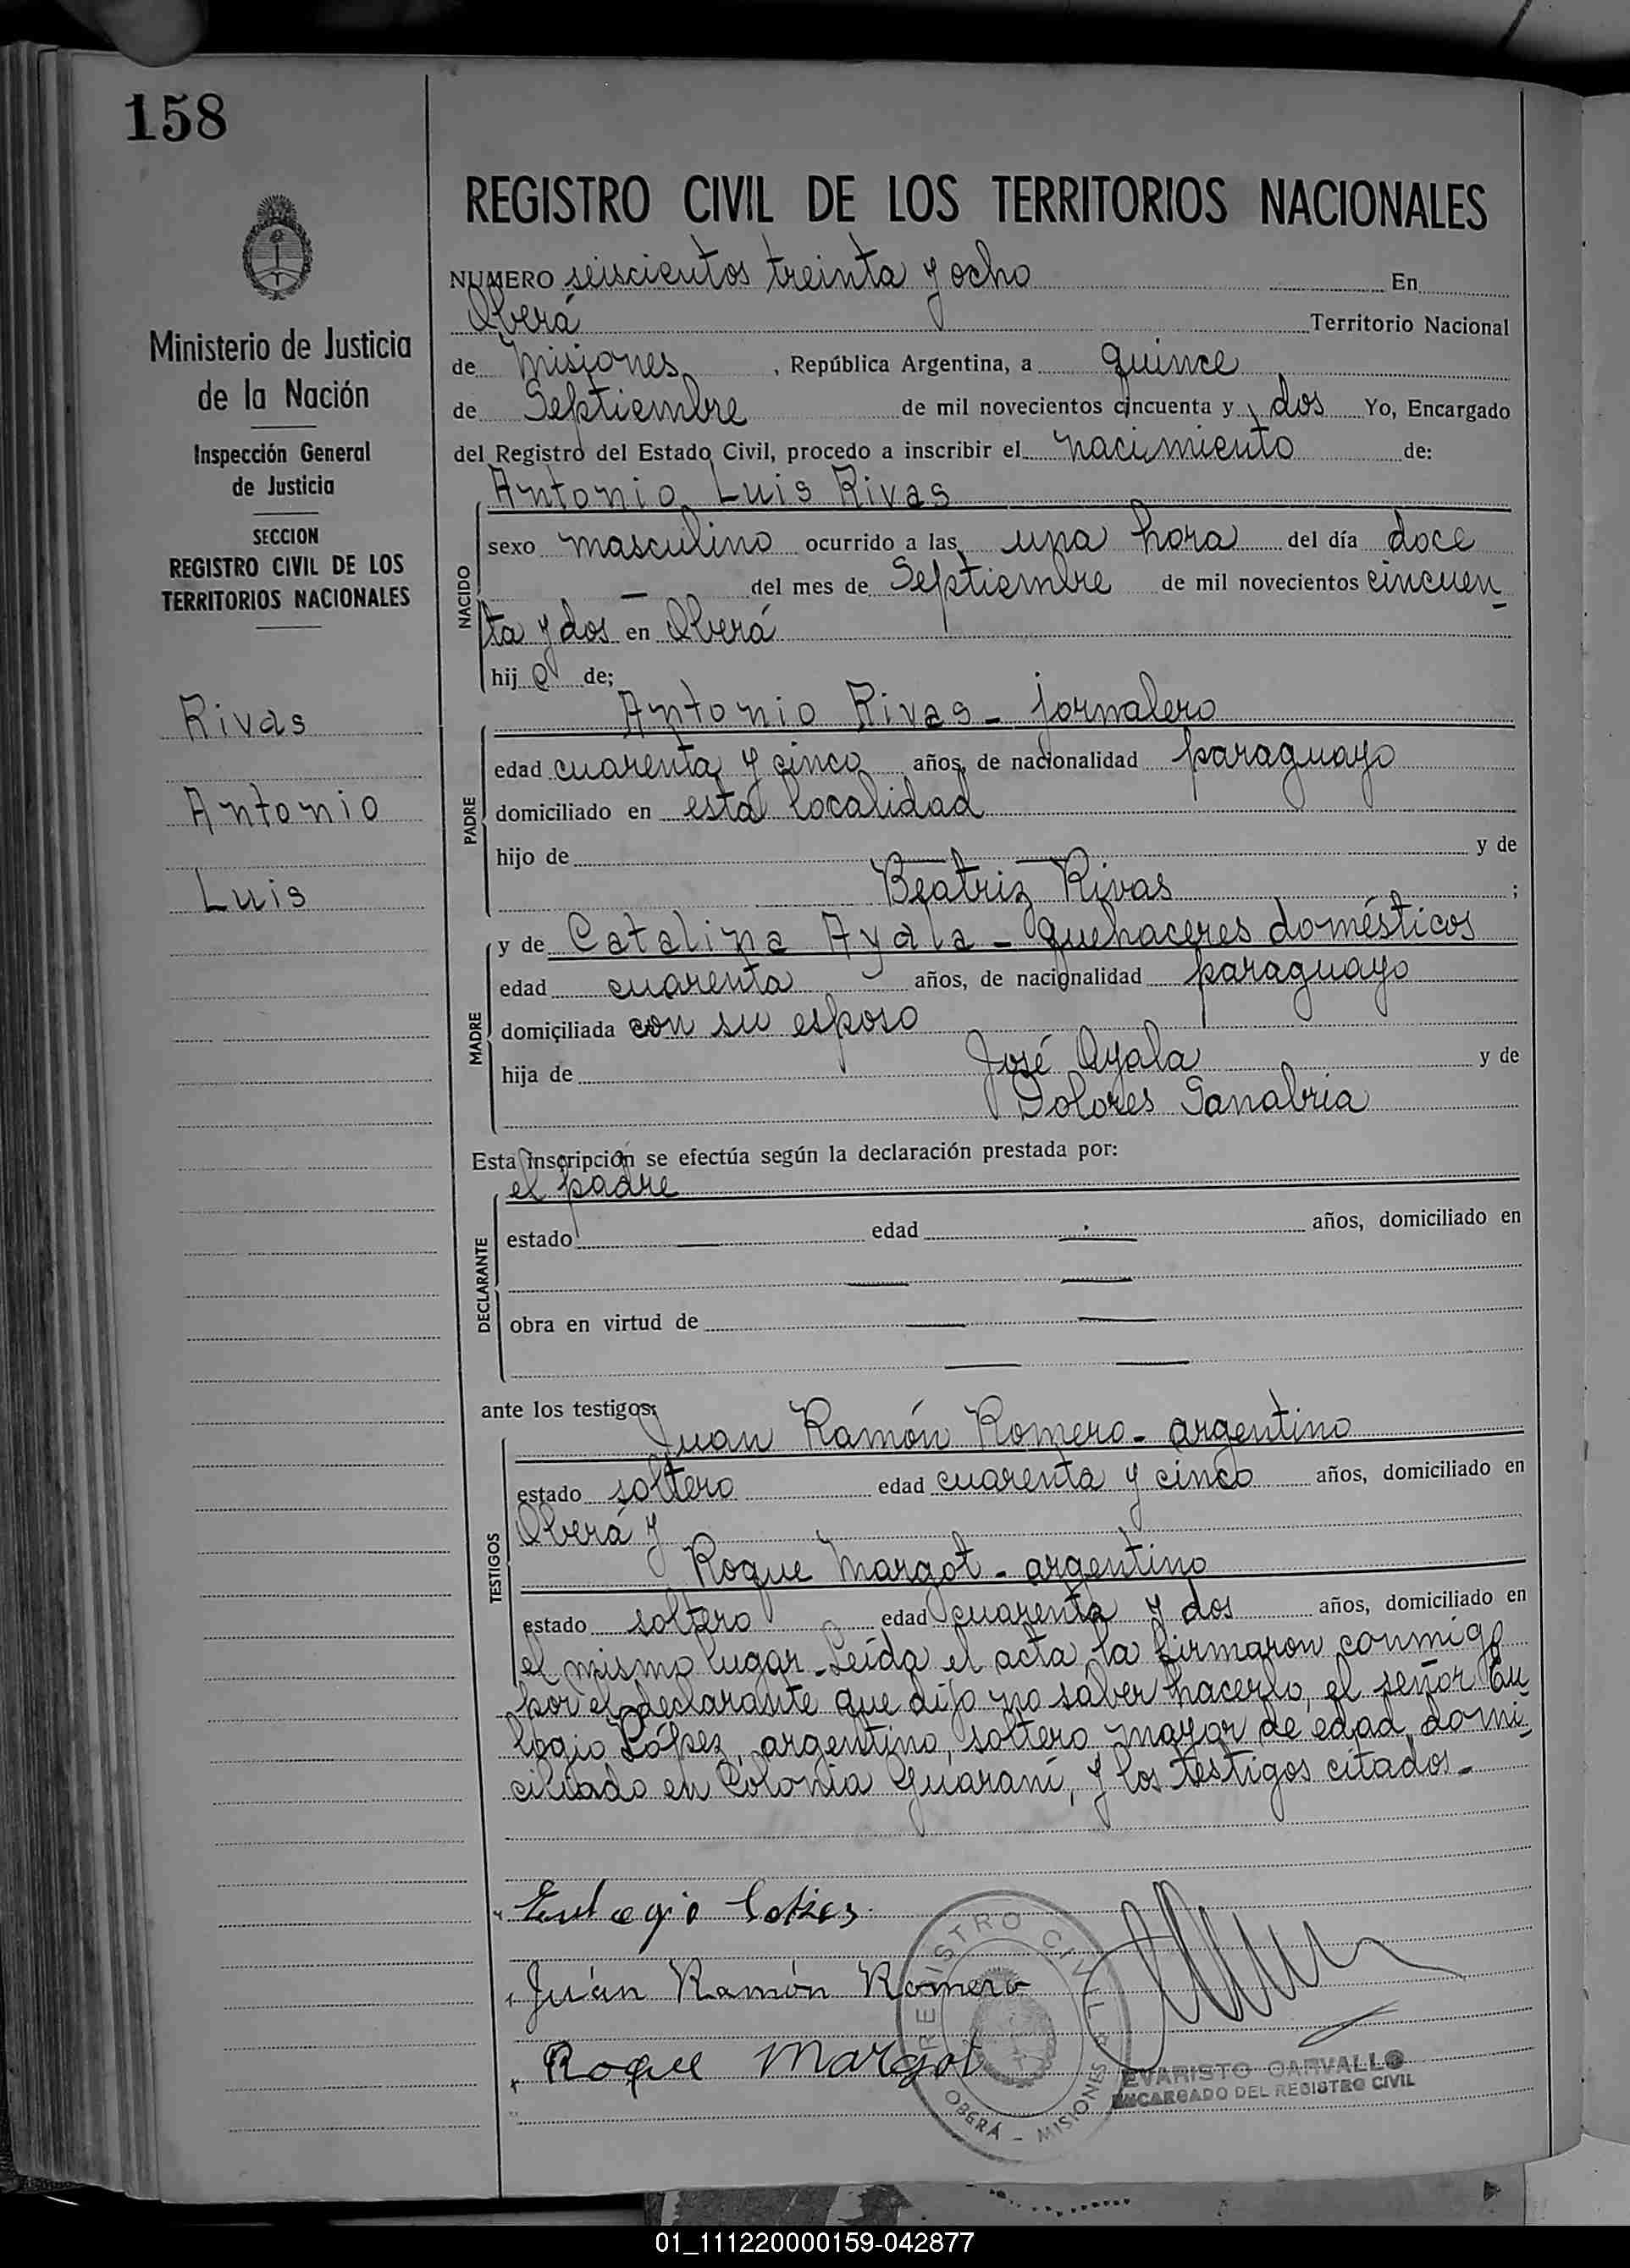 158
REGISTRO CIVIL DE LOS TERRITORIOS NACIONALES
Ministerio de Justicia
de la Nación
Inspección General
de Justicia
SECCION
REGISTRO CIVIL DE LOS
TERRITORIOS NACIONALES
Rivas
Antonio
Luis
NUMERO seiscientos treinta y ocho En
Oberá Territorio Nacional
de Misiones, República Argentina, a quince
de Septiembre de mil novecientos cincuenta y dos Yo, Encargado
del Registro del Estado Civil, procedo a inscribir el nacimiento de:
Antonio Luis Rivas
NACIDO
sexo masculino ocurrido a las una hora del día doce
— del mes de Septiembre de mil novecientos cincuen
ta y dos en Oberá
hijo de;
Antonio Rivas - jornalero
PADRE
edad cuarenta y cinco años, de nacionalidad paraguayo
domiciliado en esta localidad
hijo de — — y de
Beatriz Rivas ;
y de Catalina Ayala - quehaceres domésticos
MADRE
edad cuarenta años, de nacionalidad paraguayo
domiciliada con su esposo
hija de José Ayala y de
Dolores Sanabria
Esta inscripción se efectúa según la declaración prestada por:
el padre
DECLARANTE
estado — edad — años, domiciliado en
— —
obra en virtud de — —
— —
ante los testigos:
Juan Ramón Romero - argentino
TESTIGOS
estado soltero edad cuarenta y cinco años, domiciliado en
Oberá y
Roque Margot - argentino
estado soltero edad cuarenta y dos años, domiciliado en
el mismo lugar - Leída el acta la firmaron conmigo
por el declarante que dijo no saber hacerlo, el señor Eu
logio López, argentino, soltero mayor de edad, domi
ciliado en Colonia Guaraní, y los testigos citados.-
Eulogio Lopes
Juán Ramón Romero
Roque Margot
REGISTRO CIVIL
OBERÁ - MISIONES
EVARISTO CARVALLO
ENCARGADO DEL REGISTRO CIVIL
01_111220000159-042877